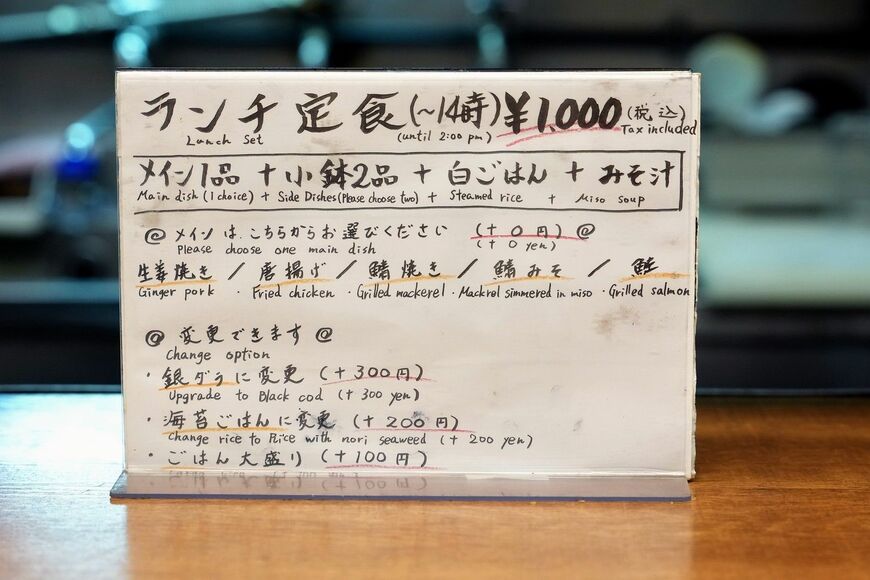 ランチ定食(〜14時)¥1,000(税込)
Lunch Set (until 2:00 pm) Tax included
メイン1品 + 小鉢2品 + 白ごはん + みそ汁
Main dish (1 choice) + Side Dishes (Please choose two) + Steamed rice + Miso soup
@ メインは、こちらからお選びください (+0円) @
Please choose one main dish (+0 yen)
生姜焼き / 唐揚げ / 鯖焼き / 鯖みそ / 鮭
Ginger pork ・Fried chicken ・Grilled mackerel ・Mackrel simmered in miso ・Grilled salmon
@ 変更できます @
Change option
・銀ダラに変更 (+300円)
Upgrade to Black cod (+300 yen)
・海苔ごはんに変更 (+200円)
Change rice to Rice with nori seaweed (+200 yen)
・ごはん大盛り (+100円)